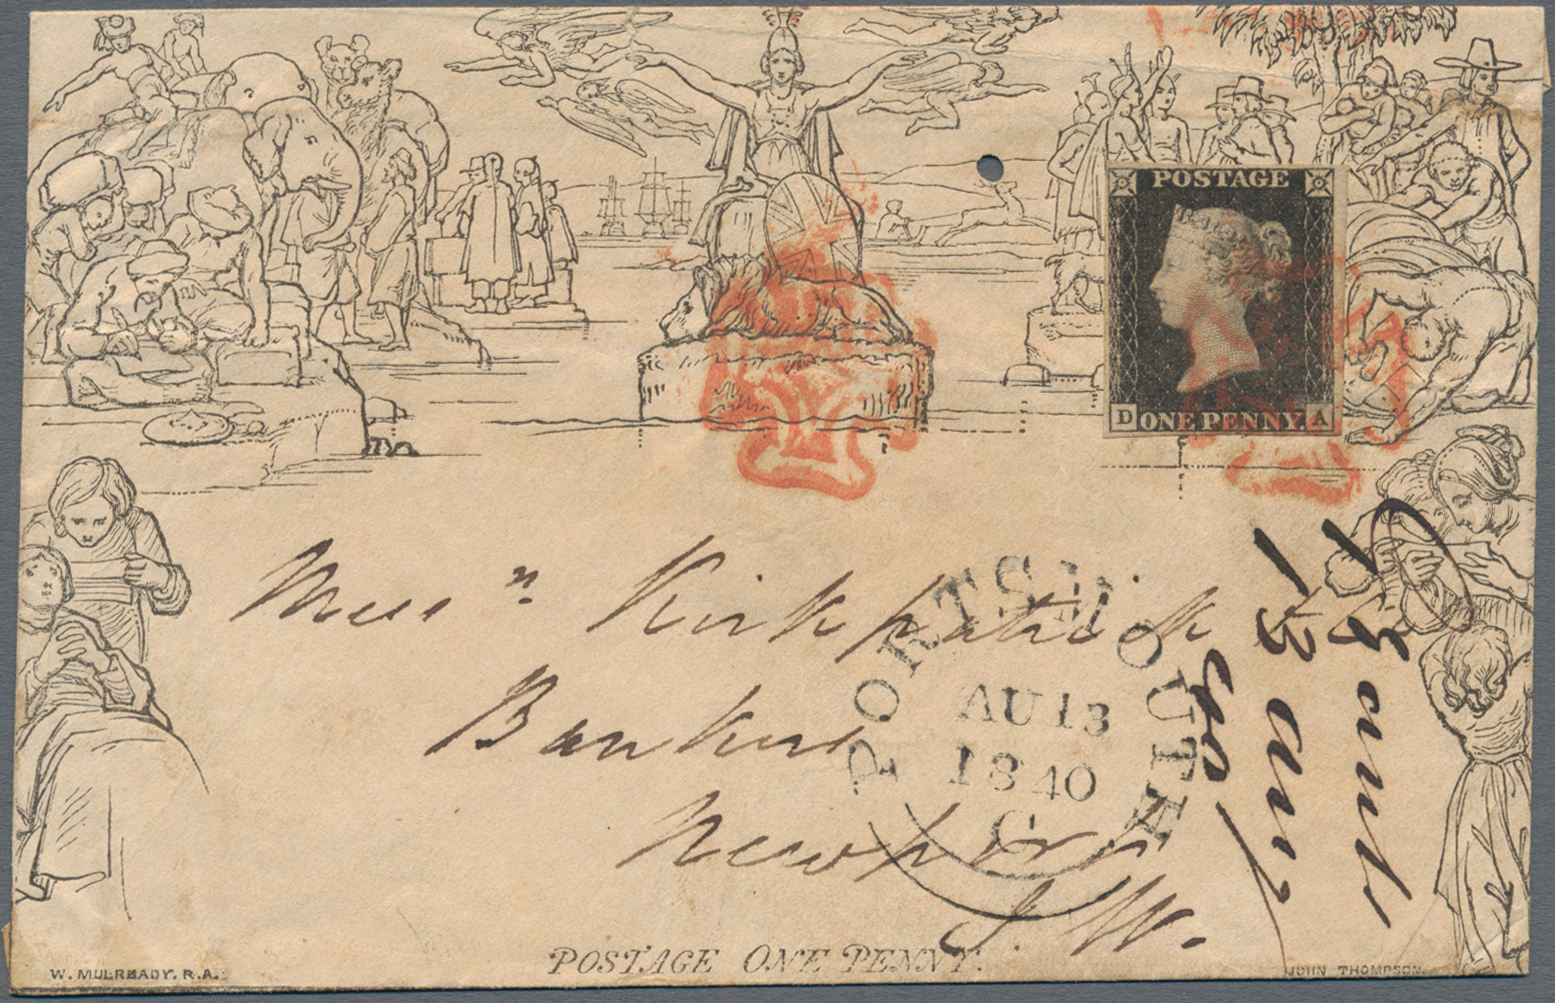 POSTAGE
D ONE PENNY. A
Mess rs Kirkpatrick
Bankers
Newport
I. W.
PORTSMOUTH
AU 13
1840
C
POSTAGE ONE PENNY.
W. MULREADY. R.A.
JOHN THOMPSON.